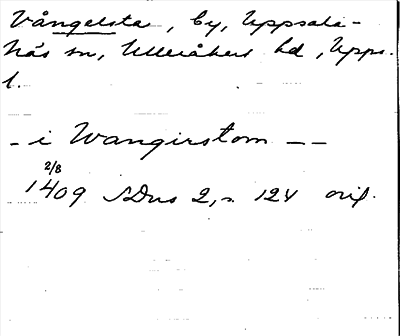 Vångelsta, by, Uppsala-
Näs sn, Ulleråkers hd, Upps.
l.
- i Wangirstom --
2/8
1409 SDns 2, s. 124 orig.